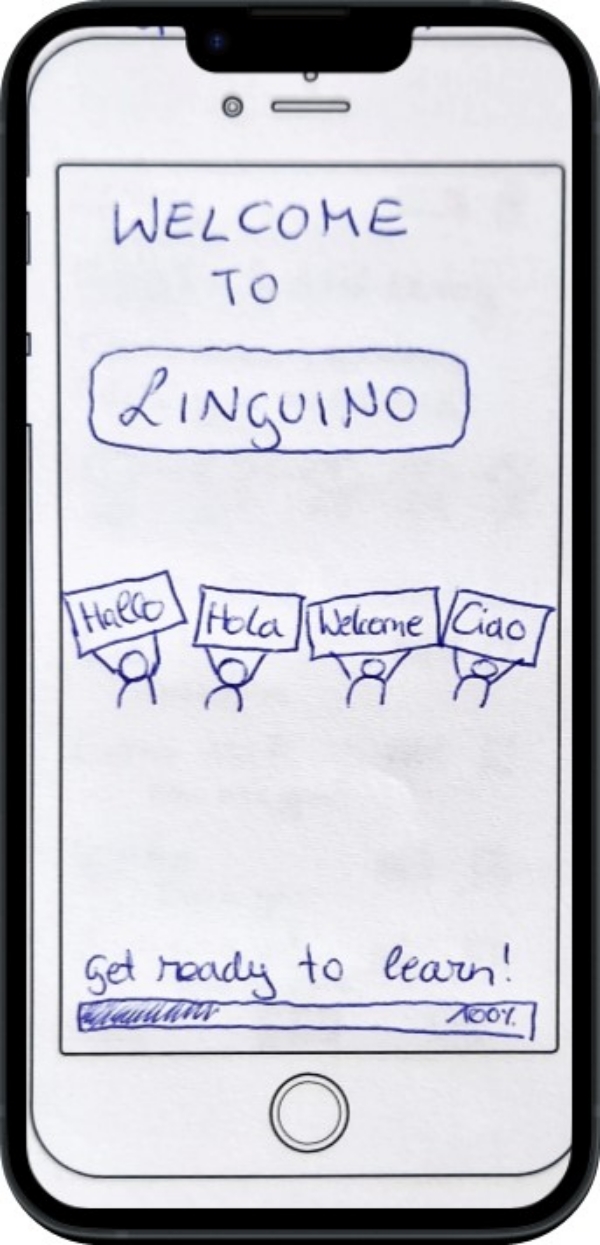 WELCOME
TO
LINGUINO
Hallo Hola Welcome Ciao
get ready to learn!
100%